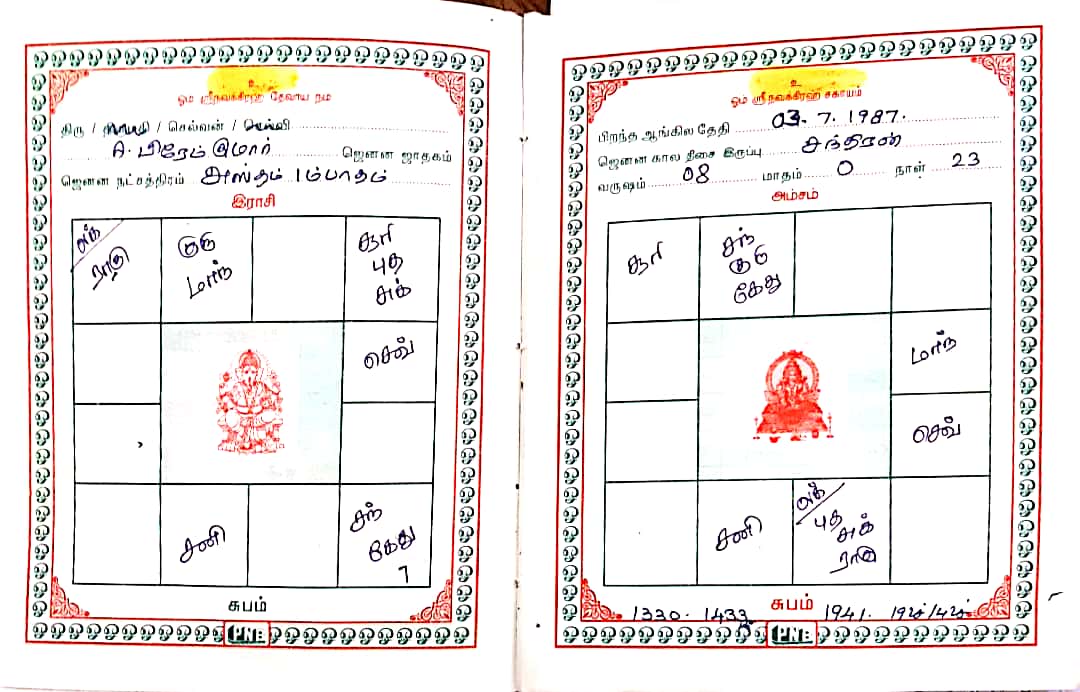 உ
ஓம் ஸ்ரீநவக்கிரஹ தேவாய நம
திரு / திருமதி / செல்வன் / செல்வி
A. பிரேம் குமார் ஜெனன ஜாதகம்
ஜெனன நட்சத்திரம் அஸ்தம் 1ம்பாதம்
இராசி
லக்
ராகு
குரு
மாந்
சூரி
புத
சுக்
செவ்
சனி
சந்
கேது
7
சுபம்
PNB
உ
ஓம் ஸ்ரீநவக்கிரஹ சகாயம்
பிறந்த ஆங்கில தேதி 03.7.1987.
ஜெனன கால திசை இருப்பு சந்திரன்
வருஷம் 08 மாதம் 0 நாள் 23
அம்சம்
சூரி
சந்
குரு
கேது
மாந்
செவ்
சனி
லக்
புத
சுக்
ராகு
சுபம்
1330. 1433 1941.
PNB